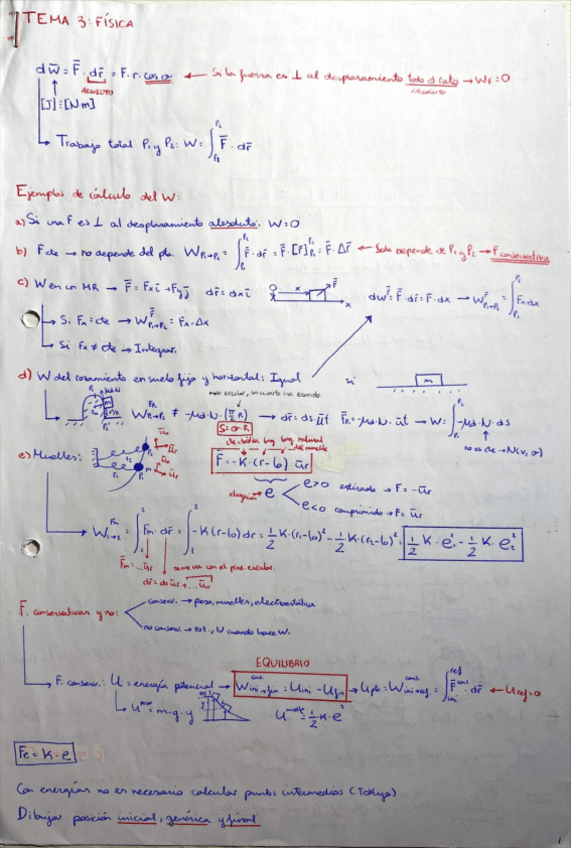 TEMA 3: FÍSICA
dW̄ = F̄ · dr̄ = F · r · cos α ← Si la fuerza es ⊥ al desplazamiento todo el rato → W_F = 0
ABSOLUTO
ABSOLUTO
[J] = [N m]
Trabajo total P₁ y P₂: W = ∫_{P₁}^{P₂} F̄ · dr̄
Ejemplos de cálculo del W:
a) Si una F es ⊥ al desplazamiento absoluto: W = 0
b) F cte → no depende del pto. W_{P₁→P₂} = ∫_{P₁}^{P₂} F̄ · dr̄ = F̄ · [r̄]_{P₁}^{P₂} = F̄ · Δr̄ ← Solo depende de P₁ y P₂ → F conservativa
c) W en un MR → F̄ = Fx ī + Fy j̄ dr̄ = dx ī
x F̄ x
dW^F̄ = F̄ · dr̄ = F · dx → W^F̄_{P₁→P₂} = ∫_{P₁}^{P₂} Fx dx
Si Fx = cte → W^F̄_{P₁→P₂} = Fx · Δx
Si Fx ≠ cte → Integrar.
d) W del rozamiento en suelo fijo y horizontal: Igual si m
W^{FR}_{P₁→P₂} ≠ -μd · N · (π/2 R) → dr̄ = ds · ūt F̄R = -μd · N · ūt → W = ∫_{P₁}^{P₂} -μd · N · ds
S = σ · R
no es cte → N(v, σ)
e) Muelles:
cte. long. natural del muelle
F̄ = -K · (r - l₀) ūr
elongación → e
e > 0 estirado → F = -ūr
e < 0 comprimido → F = ūr
W^{Fm}_{1→2} = ∫₁² F̄m · dr̄ = ∫₁² -K (r - l₀) dr = 1/2 K · (r₁ - l₀)² - 1/2 K · (r₂ - l₀)² = 1/2 K · e₁² - 1/2 K · e₂²
F̄m = ... ūr
dr̄ = dr ūr + ... ūσ
se va con el prod. escalar.
F. conservativas y no:
conserv. → peso, muelles, electrostática
no conserv. → roz., N cuando hace W.
EQUILIBRIO
F. conserv.: U = energía potencial → W^{cons.}_{ini→fin} = U_ini - U_fin → U_pto = W^{cons.}_{ini→ref.} = ∫_{ini}^{ref} F̄^{cons} · dr̄ ← U_ref = 0
U^{peso} = m · g · y U^{muelle} = 1/2 K · e²
Fe = K · e
Con energías no es necesario calcular puntos intermedios (Tokyo)
Dibujar posición inicial, genérica y final
1